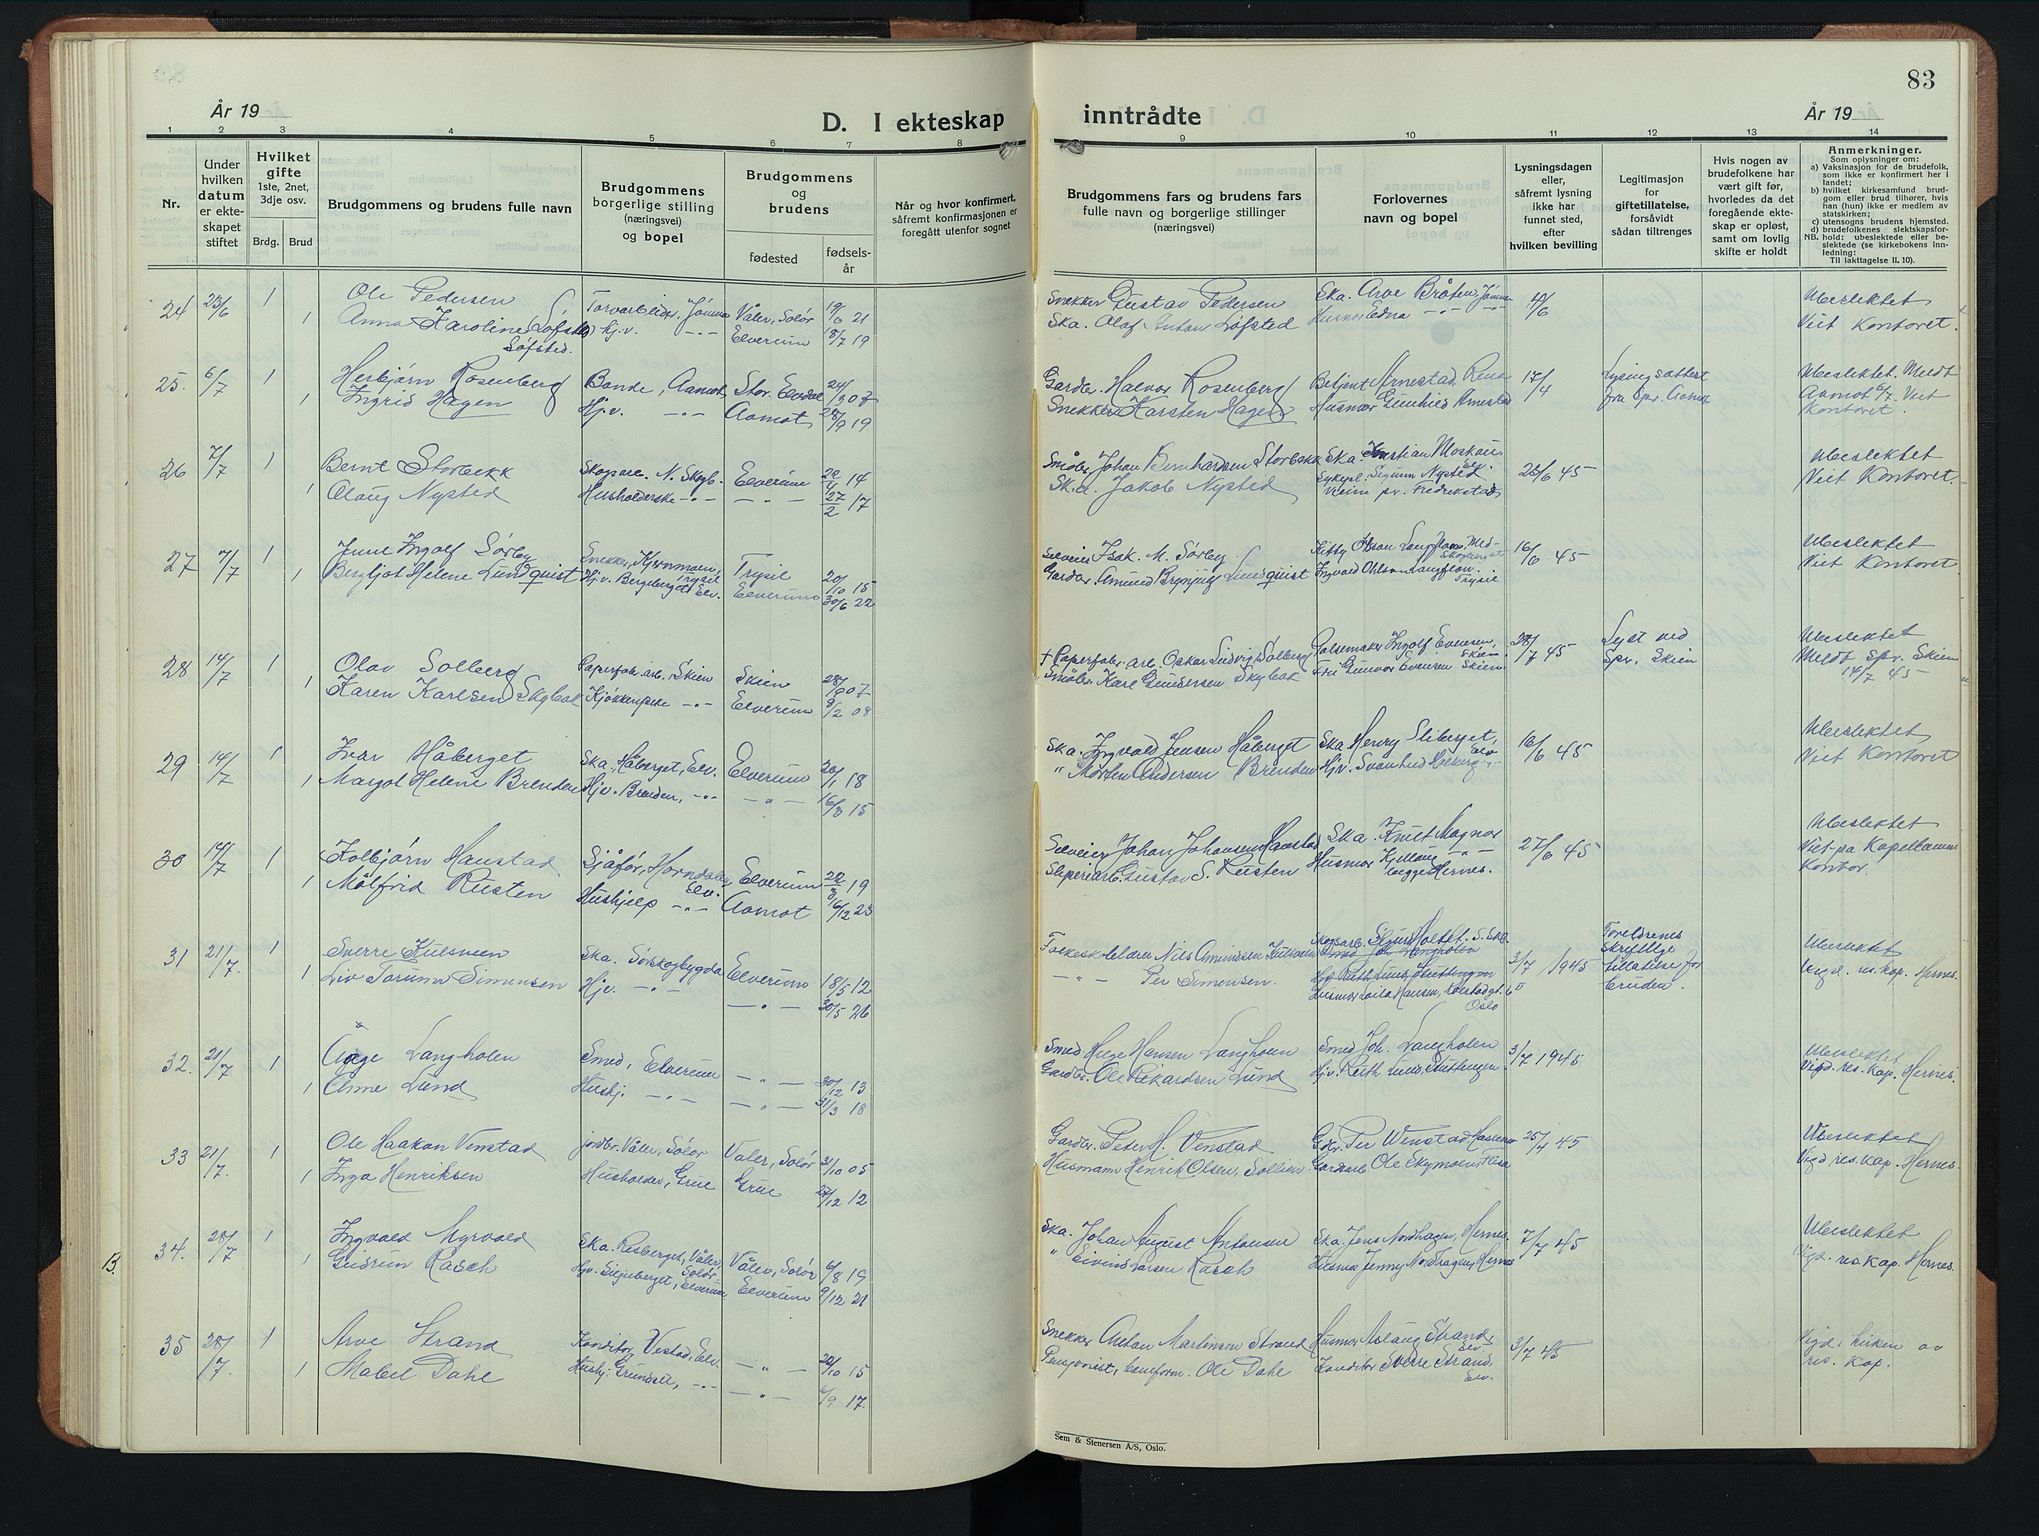 83
År 19
D. I ekteskap
inntrådte
År 19
1 2 3 4 5 6 7 8 9 10 11 12 13 14
Nr.
Under hvilken datum er ekteskapet stiftet
Hvilket gifte
1ste, 2net, 3dje osv.
Brdg. Brud
Brudgommens og brudens fulle navn
Brudgommens borgerlige stilling (næringsvei) og bopel
Brudgommens og brudens
fødested
fødselsår
Når og hvor konfirmert, såfremt konfirmasjonen er foregått utenfor sognet
Brudgommens fars og brudens fars fulle navn og borgerlige stillinger (næringsvei)
Forlovernes navn og bopel
Lysningsdagen eller, såfremt lysning ikke har funnet sted, efter hvilken bevilling
Legitimasjon for giftetillatelse, forsåvidt sådan tiltrenges
Hvis nogen av brudefolkene har vært gift før, hvorledes da det foregående ekteskap er opløst, samt om lovlig skifte er holdt
Anmerkninger.
Som oplysninger om:
a) Vaksinasjon for de brudefolk, som ikke er konfirmert her i landet;
b) hvilket kirkesamfund brudgom eller brud tilhører, hvis han (hun) ikke er medlem av statskirken;
c) utensogns brudens hjemsted.
d) brudefolkenes slektskapsforhold: ubeslektede eller beslektede (se kirkebokens innledning:
NB.
Til iakttagelse II. 10).
24 23/6 1 Ole Pedersen Torvarbeider, Jømna Våler, Solør 21 Snekker Gustav Pedersen Ska. Arve Bråten, Jømna Ubeslektet
1 Anna Karoline Løfsted Hjv. -"- Elverum 18/7 19 Ska. Olaf Anton Løfsted Husmor Edna -"- -"- Viet Kontoret.
25. 6/7 1 Herbjørn Rosenberg Bonde, Aamot Stor. Elvdal 24/3 07 Gardbr. Halvor Rosenberg Betjent Arnestad, Rena 17/4 Lysingsattest Ubeslektet. Meldt
1 Ingrid Hagen Hjv. -"- Aamot 28/9 19 Snekker Karsten Hagen Husmor Gunhild Arnestad fra Spr. Aamot Aamot 6/7. Viet Kontoret.
26 7/7 1 Bernt Storbekk Skogsarb. N. Skogb. Elverum 22/4 14 Småbr. Johan Bernhardsen Storbekk Ska. Kristian Moskau, Elv. 23/6 45 Ubeslektet
1 Olaug Nysted Husholderske -"- -"- 27/2 17 Ska. Jakob Nysted Sykepl. Sigrun Nysted Fredrikstad Viet Kontoret.
27 7/7 1 Ingolf Sørby Snekker, Kjernmoen, Trysil Trysil 20/10 15 Isak. M. Sørby. Kitty Olson Langfloen, Med- 16/6 45 Ubeslektet
1 Bergljot Helene Lundquist Hjv. Bergeberget Elv. Elverum 30/6 22 Gardbr. Amund Lundquist Ingvald Ohlson Langfloen. Trysil Viet Kontoret.
28 14/7 1 Olav Solberg Papirfab. arb. Skien Skien 28/9 07 † Papirfabr. arb. Oskar Ludvig Solberg Pølsemaker Ingolf Evensen, Skien 7 45 Lyst ved Ubeslektet
1 Karen Karlsen Skybak Kjøkken -"- Elverum 8/2 08 Småbr. Karl Gundersen Skybak Fru Gunvor Evensen Skien Spr. Skien Meldt spr. Skien 14/7 45
29 14/7 1 Ivar Håberget Ska., Håberget, Elv. Elverum 20/1 18 Ska. Ingvald Jensen Håberget Ska Henry Sliberget, Elv 16/6 45 Ubeslektet
1 Margot Helene Brenden Hjv. Brenden, -"- -"- 16/3 15 " Morten Andersen Brenden Hjv. Svanhild -"- Viet Kontoret
30 14/7 1 Kolbjørn Haustad Sjåfør, Horndalen Elv. Elverum 22/3 19 Johan Johansen Haustad Ska. Knut Magnor 27/6 45 Ubeslektet
1 Målfrid Rusten Hushjelp -"- Aamot 16/12 23 Sliperiarb. Gustav S. Rusten Husmor Kjellaug -"- begge Hernes. Viet på Kapellanens Kontor.
31 21/7. 1 Sverre Kulsveen Ska. Sørskogbygda Elverum 18/5 12 Folkeskolelærer Nils Amundsen Kulsveen Skogsarb. Sigurd Holtet. S. Skb. 3/7 1945 Foreldrenes Ubeslektet
1 Liv Torunn Simensen Hjv. -"- -"- 30/5 26 -"- Per Simensen. Husmor Laila Hansen, Oslo skriftlige tillatelse for bruden. Vigd. res. kap. Hernes.
32. 21/7 1 Åge Langholen Smed, Elverum -"- 30/12 13 Smed Hansen Langholen Smed Joh. Langholen 3/7 1945 Ubeslektet
1 Anne Lund Hushj. -"- -"- 31/3 18 Gardbr. Ole Rikardsen Lund Hjv. Ruth Lund Vigd. res. kap. Hernes.
33 21/7. 1 Ole Haakon Venstad jordbr. Våler, Solør Våler, Solør 31/10 05 Gardbr. Peter H. Venstad Gdbr. Per Wenstad 25/4 45 Ubeslektet
1 Inga Henriksen Husholder, Grue Grue 27/12 12 Husmann Henrik Olsen, Gardarb. Ole Vigd res. kap. Hernes.
B. 34. 28/7 1 Ingvald Myrvold Ska. Risberget, Våler, Solør Våler, Solør 6/8 19 Ska. Johan August Antonsen Ska. Jens Nordhagen, Hernes 7/7 45 Ubeslektet
1 Gudrun Rasch Hjv. Siljuberget, Elverum Elverum 9/12 21 " Eivind Larsen Rasch Husmor Jenny Nordhagen, Hernes Vigd. res. kap. Hernes.
35 28/7. 1 Arve Strand Konditor, Vestad, Elv. -"- 28/10 15 Snekker Anton Martinsen Strand Husmor Aslaug Strand Elv 3/7 45 Vigd i kirken av
1 Mabel Dahl Hushj. Grundset, -"- -"- 6/9 17. Pensjonist, Ole Dahl Konditor Sverre Strand Elv. res. Kap.
Sem & Stenersen A/S, Oslo.